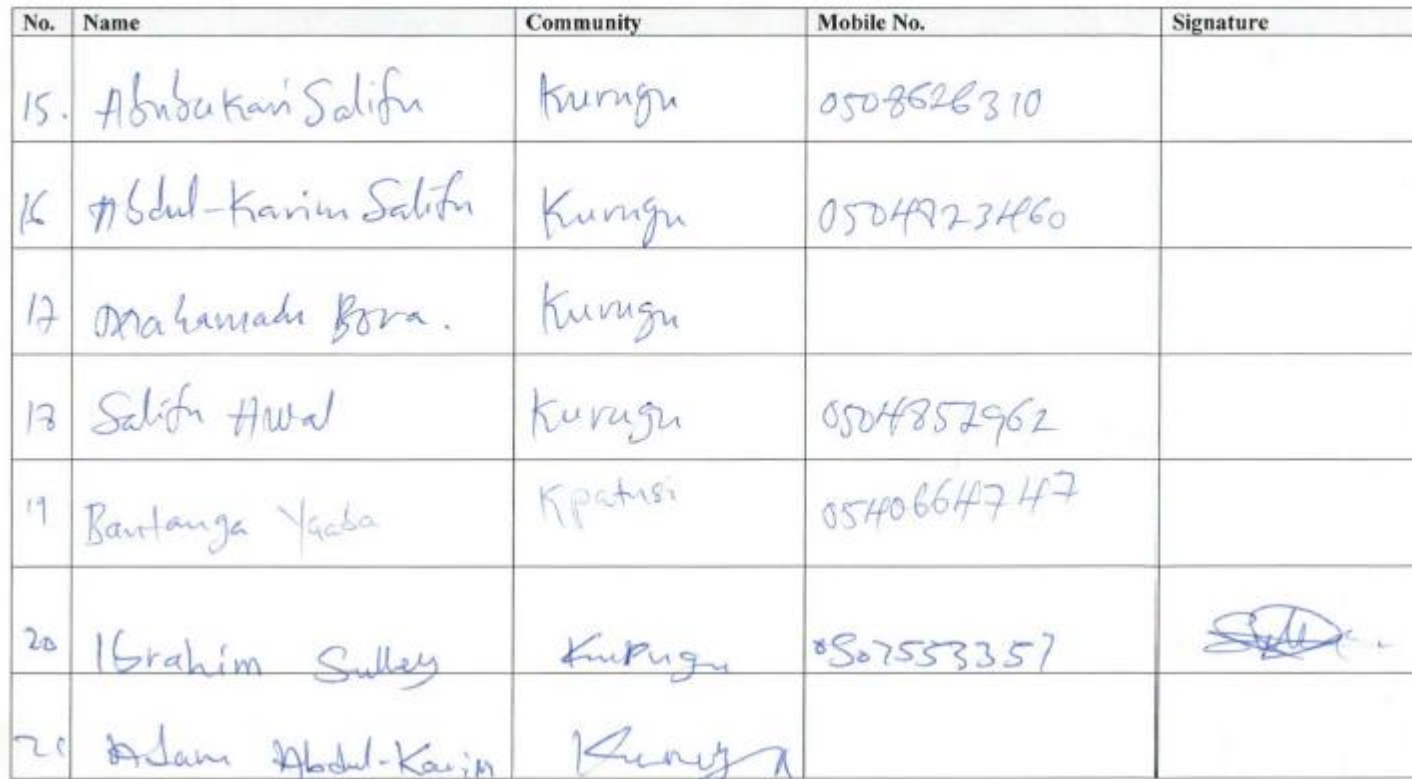 No. Name Community Mobile No. Signature
15. Abubakari Salifu Kurugu 0508626310
16 Abdul-Karim Salifu Kurugu 0504923460
17 Mahamadu Bora. Kurugu
18 Salifu Awal Kurugu 0504852962
19 Bantanga Yaaba Kpatusi 0540664747
20 Ibrahim Sulley Kurugu 0507553357
21 Adam Abdul-Karim Kurugu